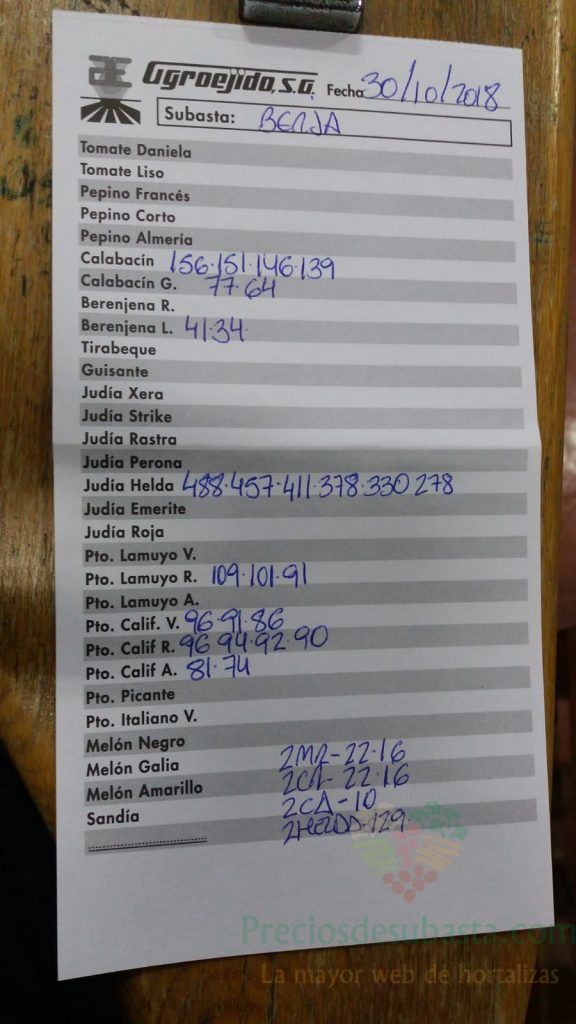 Agroejido, S.A. Fecha 30/10/2018
Subasta: BERJA
Tomate Daniela
Tomate Liso
Pepino Francés
Pepino Corto
Pepino Almería
Calabacín 156·151·146·139
Calabacín G. 77·64
Berenjena R.
Berenjena L. 41·34·
Tirabeque
Guisante
Judía Xera
Judía Strike
Judía Rastra
Judía Perona
Judía Helda 488·457·411·378·330 278
Judía Emerite
Judía Roja
Pto. Lamuyo V.
Pto. Lamuyo R. 109·101·91
Pto. Lamuyo A.
Pto. Calif. V. 96·91·86
Pto. Calif R. 96 94·92·90
Pto. Calif A. 81·74
Pto. Picante
Pto. Italiano V.
Melón Negro
Melón Galia 2MR-22·16
Melón Amarillo 2CR-22·16
Sandía 2CA-10
2HELDA·129·
Preciosdesubasta.com
La mayor web de hortalizas